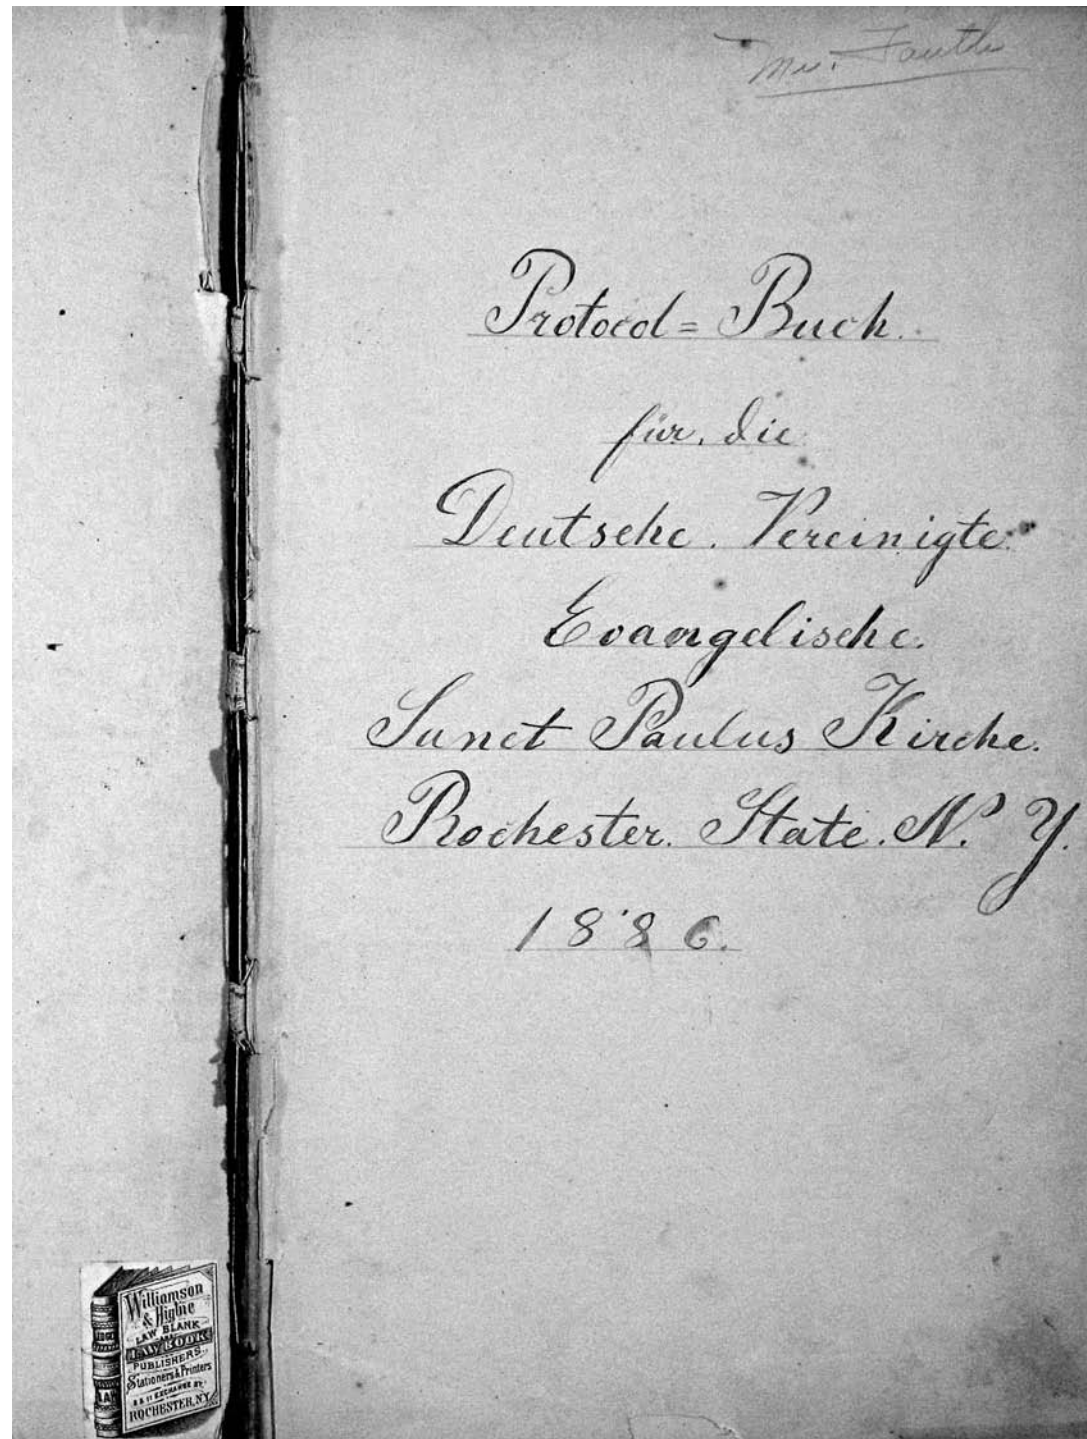 Mr. Fauth
Protocol = Buch.
für die
Deutsche. Vereinigte
Evangelische.
Sanct Paulus Kirche.
Rochester. State. N. Y.
1886.
Williamson
& Higbie
LAW BLANK
LAW BOOK
PUBLISHERS
Stationers & Printers
EXCHANGE ST.
ROCHESTER, N.Y.